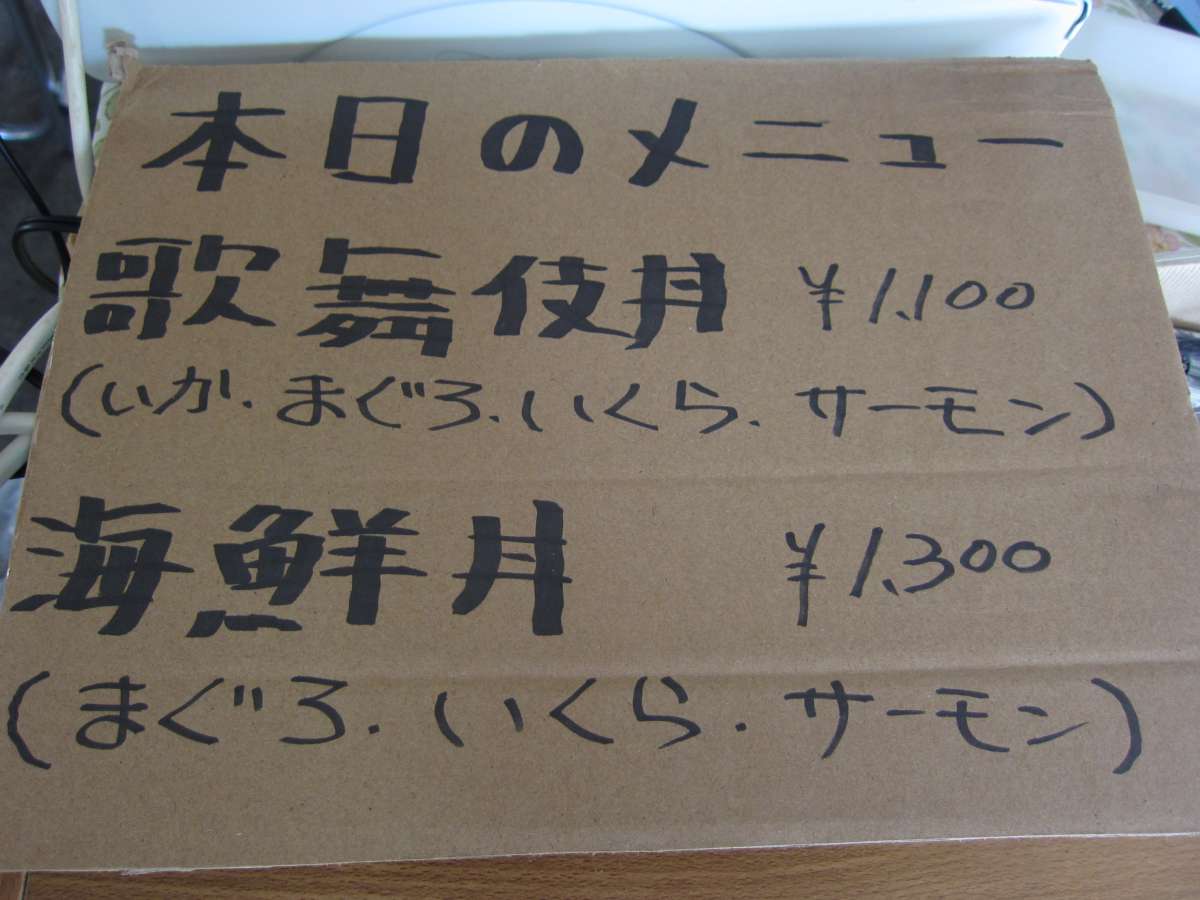 本日のメニュー
歌舞伎丼 ¥1,100
(いか.まぐろ.いくら.サーモン)
海鮮丼 ¥1,300
(まぐろ.いくら.サーモン)